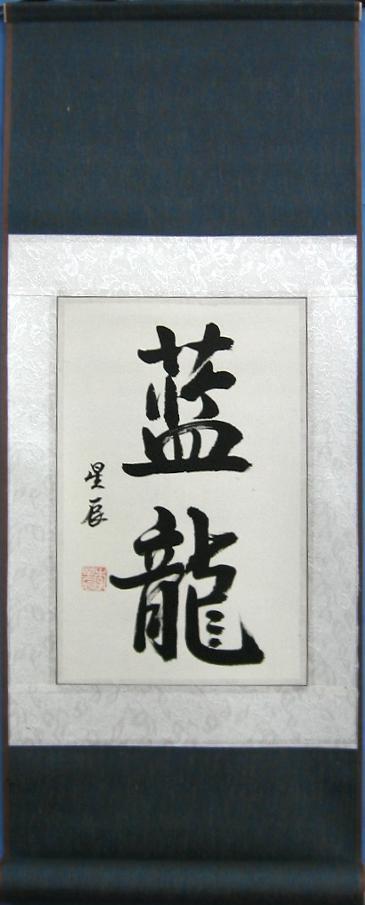 蓝龍
星辰